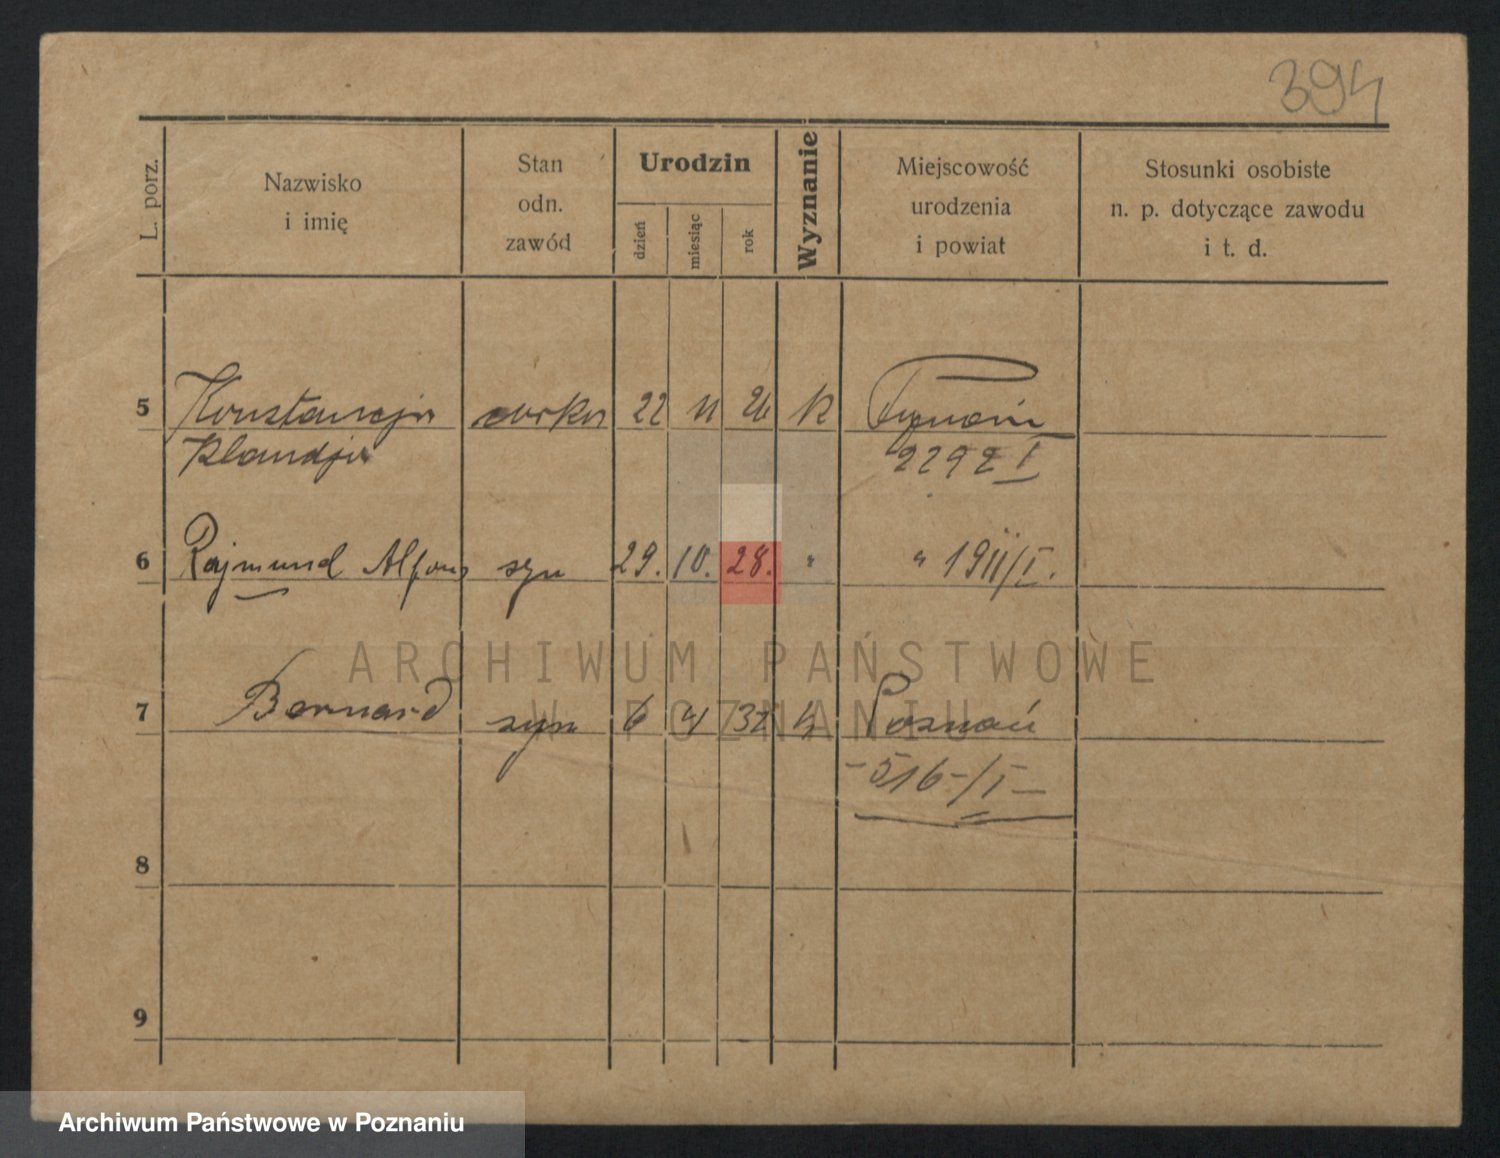 394
L. porz.
Nazwisko
i imię
Stan
odn.
zawód
Urodzin
dzień
miesiąc
rok
Wyznanie
Miejscowość
urodzenia
i powiat
Stosunki osobiste
n. p. dotyczące zawodu
i t. d.
5 Konstancja 22 11 26 k
Klaudja 2292 I
6 Rajmund Alfons syn 29. 10. 28. " " 1911/I.
ARCHIWUM PAŃSTWOWE
W POZNANIU
7 Bernard syn 6 4 32 k Poznań
-516-/I-
8
9
Archiwum Państwowe w Poznaniu